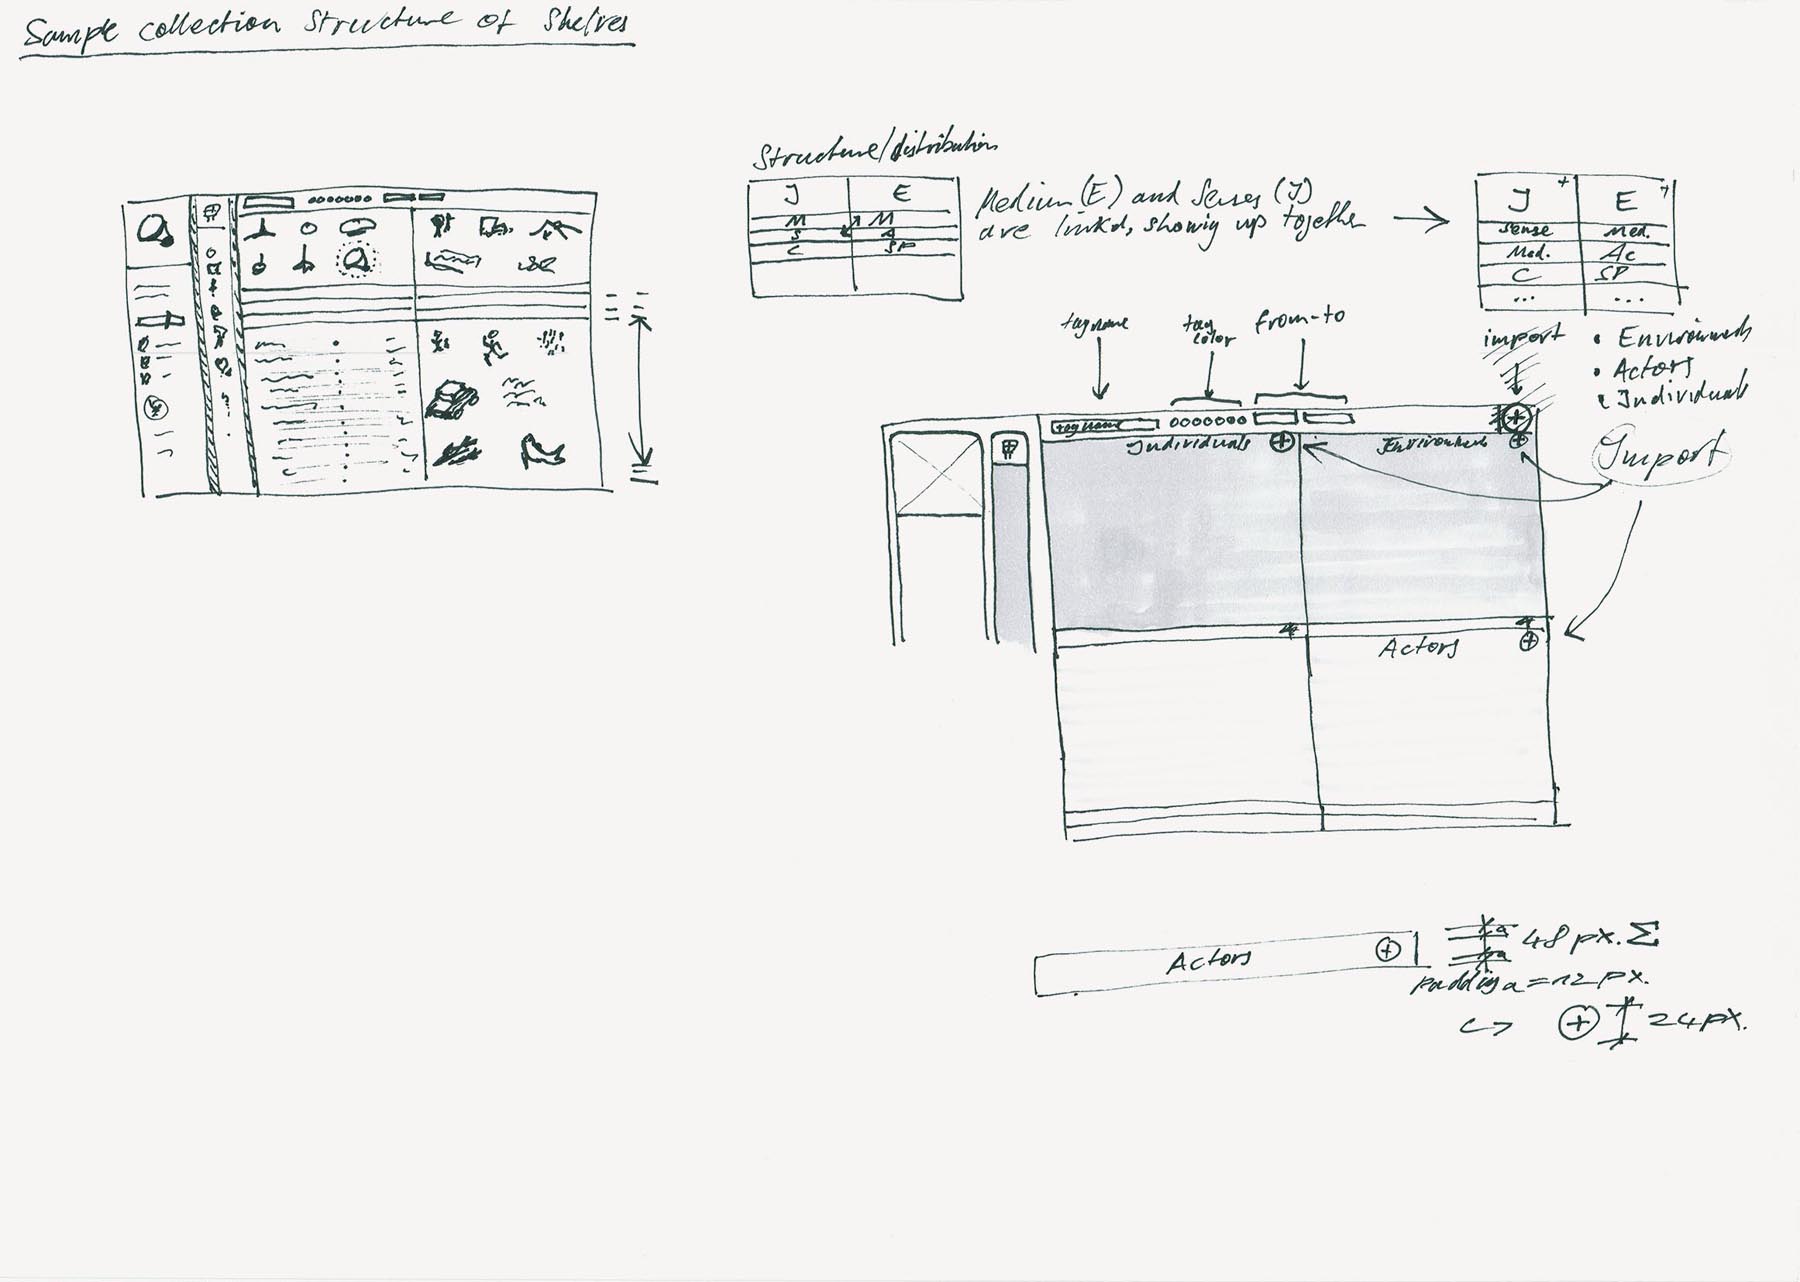 Sample collection structure of Shelves
Structure/distribution
J E
M M
S A
C SP
Medium (E) and Senses (J)
are linked, showing up together
J + E +
Sense Med.
Med. Ac
C SP
... ...
tag name
tag
color
from-to
import
• Environments
• Actors
• Individuals
Import
tag name
Individuals +
Environment +
Actors +
Actors +
a
a
48 px. Σ
padding a = 12 px.
+ 24 px.